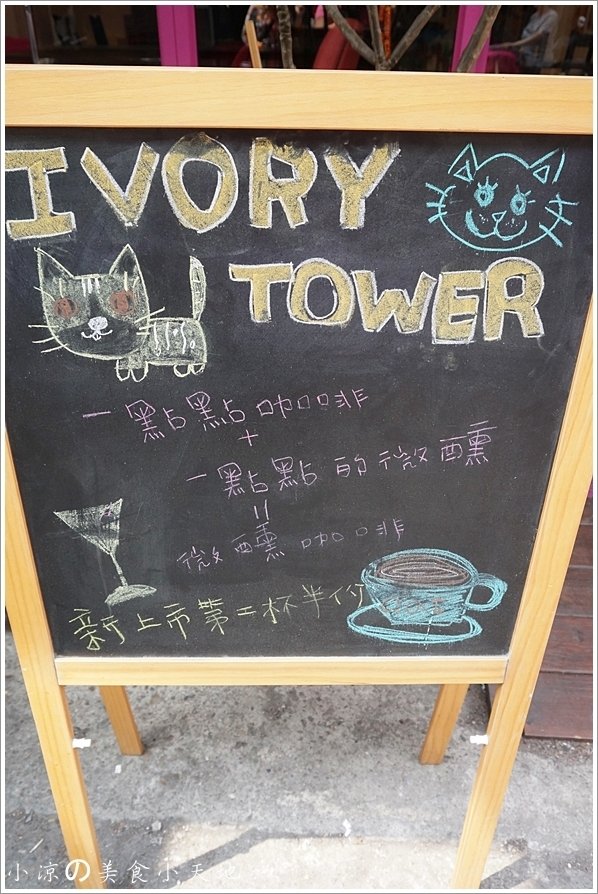 IVORY
TOWER
一點點咖啡
+
一點點的微醺
=
微醺咖啡
新上市第二杯半價
小涼の美食小天地